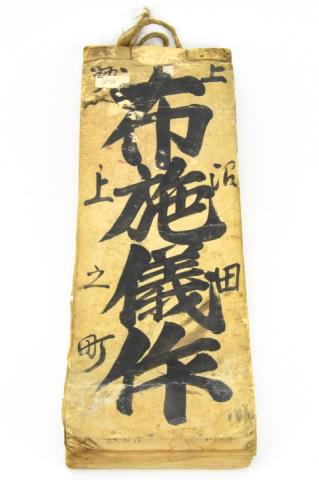 上沼田
布施儀作
上之町